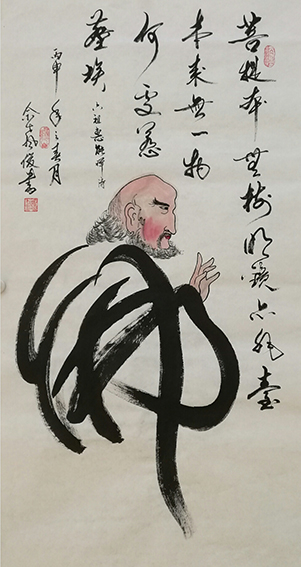 菩提本無樹明鏡亦非臺
本來無一物
何處惹
塵埃 六祖惠能禪詩
丙申年之春月
佛